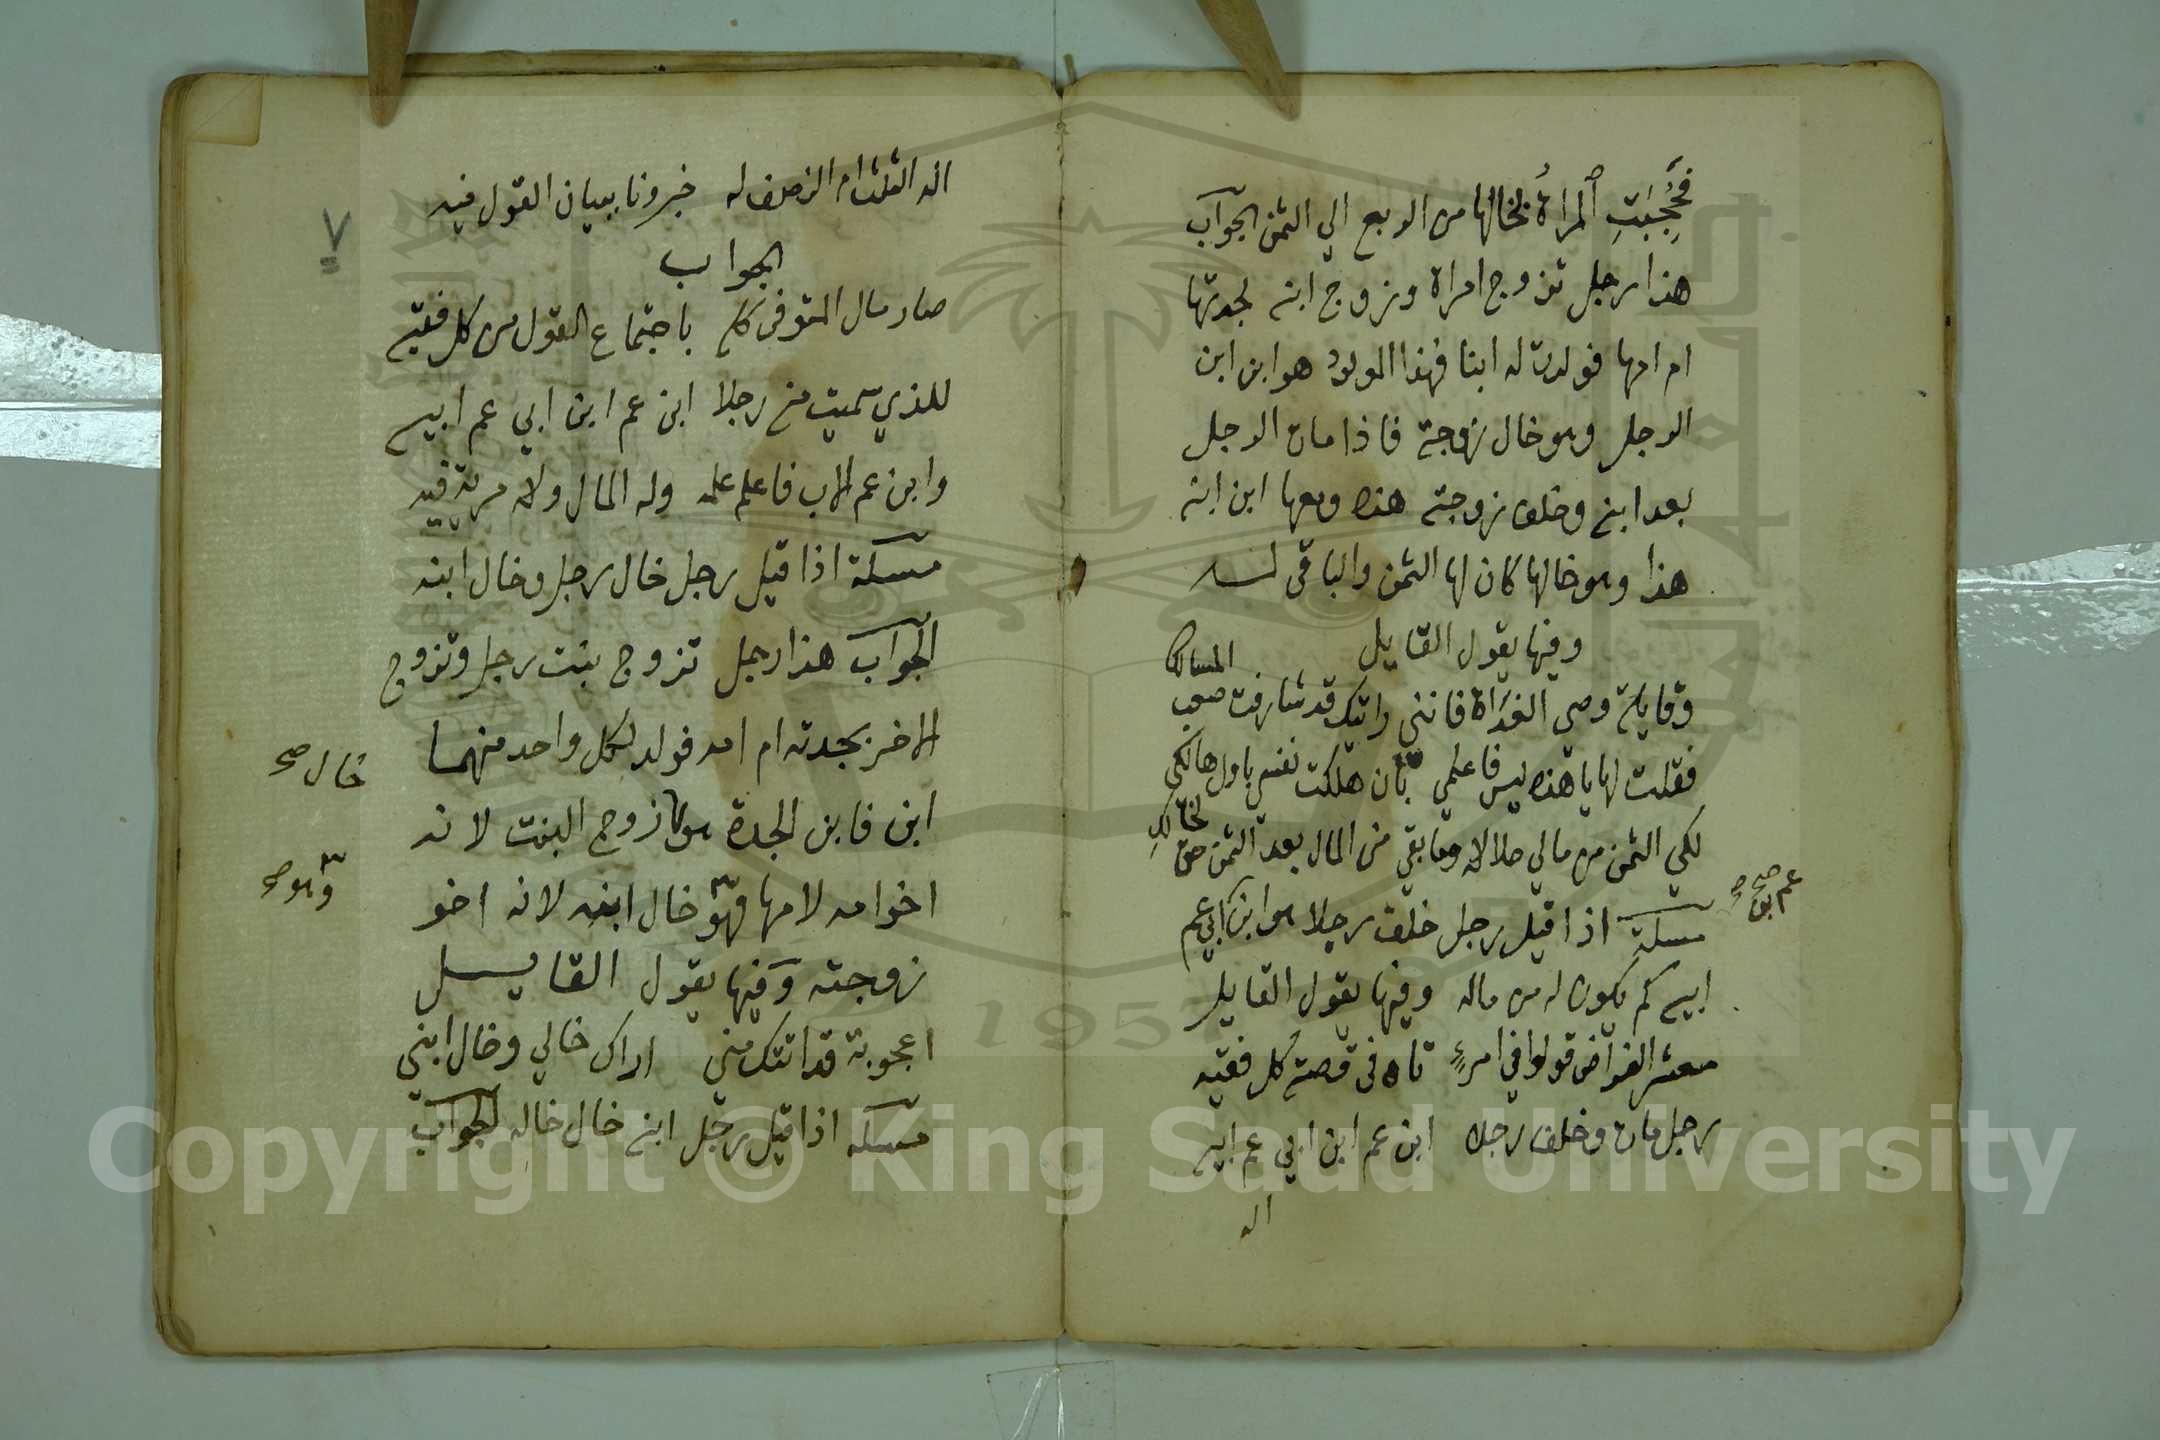 فحجبت المراة بخالها من الربع الي الثمن الجواب
هذا رجل تزوج امراة وزوج ابنه لجدتها
ام امها فولدت له ابنا فهذا المولود هو ابن ابن
الرجل وهو خال زوجته فاذا مات الرجل
بعد ابنه وخلف زوجته هذه ومعها ابن ابنه
هذا وهو خالها كان لها الثمن والباقي لـه
وفيها يقول القايل
وقايلة وصي الغداة فانني رايتك قد شارفت صعب المسالك
فقلت لها يا هذه ليس فاعلمي بان هلكت نفسي باول هالكي
لكي الثمن من مالي حلالا وما بقي من المال بعد الثمن حق لخالكِ
مسئلة اذا قيل رجل خلف رجلا هو ابن ابي عم
عم ابن صح
ابيه كم يكون له من ماله وفيها يقول القايل
معشر الفراض قولوا في امرئٍ تاه في قصته كل فقيه
رجل مات وخلف رجلا ابن عم ابن ابي عم ابيه
اله
٧
اله الثلث ام النصف له خبرونا ببيان القول فيه
الجواب
صار مال المتوفى كله باجتماع القول من كل فقيه
للذي سميت منه رجلا ابن عم ابن ابي عم ابيه
وابن عم الاب فاعلم علمه وله المال ولا مرية فيه
مسئلة اذا قيل رجل خال رجل وخال ابنه
الجواب هذا رجل تزوج بنت رجل وتزوج
الاخر بجدته ام امه فولد لكل واحد منهما
خال صح
ابن فابن الجدة هو زوج البنت لانه
اخوا مه لامها فهو خال ابنه لانه اخو
وهو صح
زوجته وفيها يقول القايل
اعجوبة قد اتتك مني اراك خالي وخال ابني
مسئلة اذا قيل رجل ابنه خال خاله الجواب
Copyright © King Saud University
1957